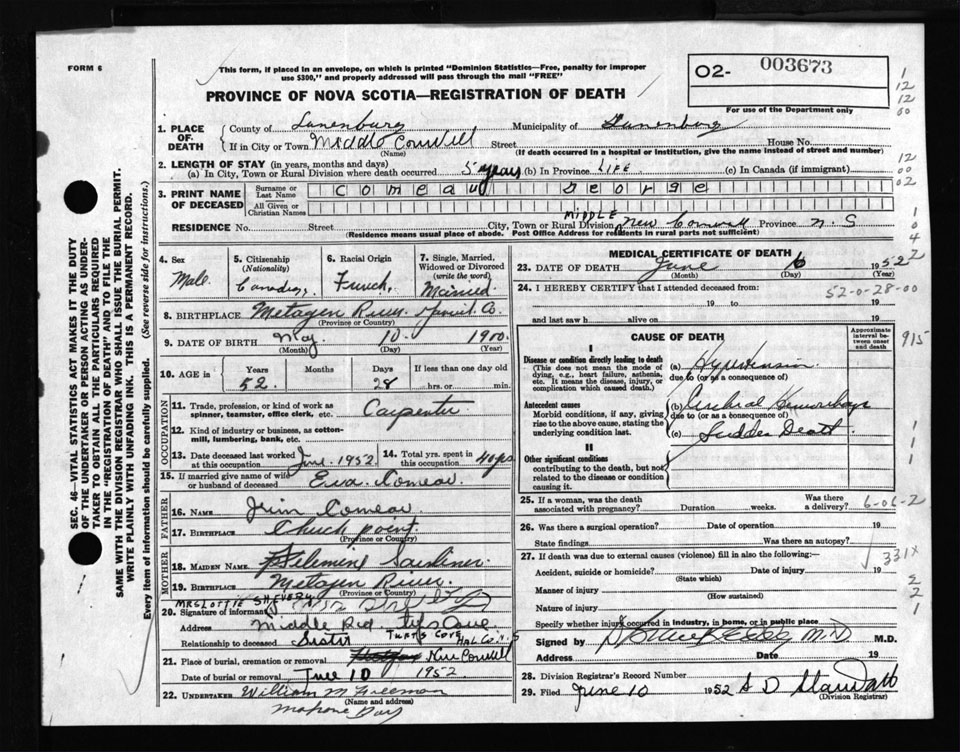 FORM 6
This form, if placed in an envelope, on which is printed "Dominion Statistics—Free, penalty for improper use $300," and properly addressed will pass through the mail "FREE"
O2- 003673
For use of the Department only
PROVINCE OF NOVA SCOTIA—REGISTRATION OF DEATH
1. PLACE OF DEATH { County of Lunenburg Municipality of Lunenburg
If in City or Town Middle Cornwall (Name) Street House No.
(If death occurred in a hospital or institution, give the name instead of street and number)
2. LENGTH OF STAY (in years, months and days)
(a) In City, Town or Rural Division where death occurred 5 years (b) In Province LIFE (c) In Canada (if immigrant)
3. PRINT NAME OF DECEASED Surname or Last Name Comeau George
All Given or Christian Names
RESIDENCE No. Street City, Town or Rural Division MIDDLE New Cornwall Province N. S
(Residence means usual place of abode. Post Office Address for residents in rural parts not sufficient)
4. Sex Male
5. Citizenship (Nationality) Canadian
6. Racial Origin French
7. Single, Married, Widowed or Divorced (write the word) Married
8. BIRTHPLACE Metagen River (Province or Country)
9. DATE OF BIRTH May (Month) 10 (Day) 1900 (Year)
10. AGE in Years 52 Months Days 28 If less than one day old hrs. or min.
OCCUPATION
11. Trade, profession, or kind of work as spinner, teamster, office clerk, etc. Carpenter
12. Kind of industry or business, as cotton-mill, lumbering, bank, etc.
13. Date deceased last worked at this occupation June 1952 14. Total yrs. spent in this occupation 40 yrs
15. If married give name of wife or husband of deceased Eva Comeau
FATHER
16. Name Jim Comeau
17. BIRTHPLACE Church point (Province or Country)
MOTHER
18. MAIDEN NAME
19. BIRTHPLACE Metagen River (Province or Country)
MRS LOTTIE SHEVERY
20. Signature of informant
Address Middle
Relationship to deceased Sister HAL CO N S
21. Place of burial, cremation or removal New Cornwall
Date of burial or removal June 10 1952
22. UNDERTAKER William M Freeman (Name and address)
Mahone Bay
MEDICAL CERTIFICATE OF DEATH
23. DATE OF DEATH June (Month) (Day) 1952 (Year)
24. I HEREBY CERTIFY that I attended deceased from:
19 to 19
and last saw h alive on 19
52-0-28-00
CAUSE OF DEATH
Approximate interval between onset and death
I
Disease or condition directly leading to death
(This does not mean the mode of dying, e.g., heart failure, asthenia, etc. It means the disease, injury, or complication which caused death.)
(a) Hypertension
due to (or as a consequence of)
Antecedent causes
Morbid conditions, if any, giving rise to the above cause, stating the underlying condition last.
(b) Cerebral Hemorrhage
due to (or as a consequence of)
(c) Sudden Death
II
Other significant conditions contributing to the death, but not related to the disease or condition causing it.
25. If a woman, was the death associated with pregnancy? Duration weeks. Was there a delivery?
6-06-2
26. Was there a surgical operation? Date of operation 19
State findings Was there an autopsy?
27. If death was due to external causes (violence) fill in also the following:—
331X
Accident, suicide or homicide? (State which) Date of injury 19
Manner of injury (How sustained)
Nature of injury
Specify whether injury occurred in industry, in home, or in public place
Signed by M.D. M.D.
Address Date 19
28. Division Registrar's Record Number
29. Filed June 10 1952 (Division Registrar)
SEC. 46—VITAL STATISTICS ACT MAKES IT THE DUTY OF THE UNDERTAKER OR PERSON ACTING AS UNDERTAKER TO OBTAIN ALL THE PARTICULARS REQUIRED IN THE "REGISTRATION OF DEATH" AND TO FILE THE SAME WITH THE DIVISION REGISTRAR WHO SHALL ISSUE THE BURIAL PERMIT.
WRITE PLAINLY WITH UNFADING INK. THIS IS A PERMANENT RECORD.
Every item of information should be carefully supplied. (See reverse side for instructions.)
1
12
12
00
12
00
02
1
0
4
2
915